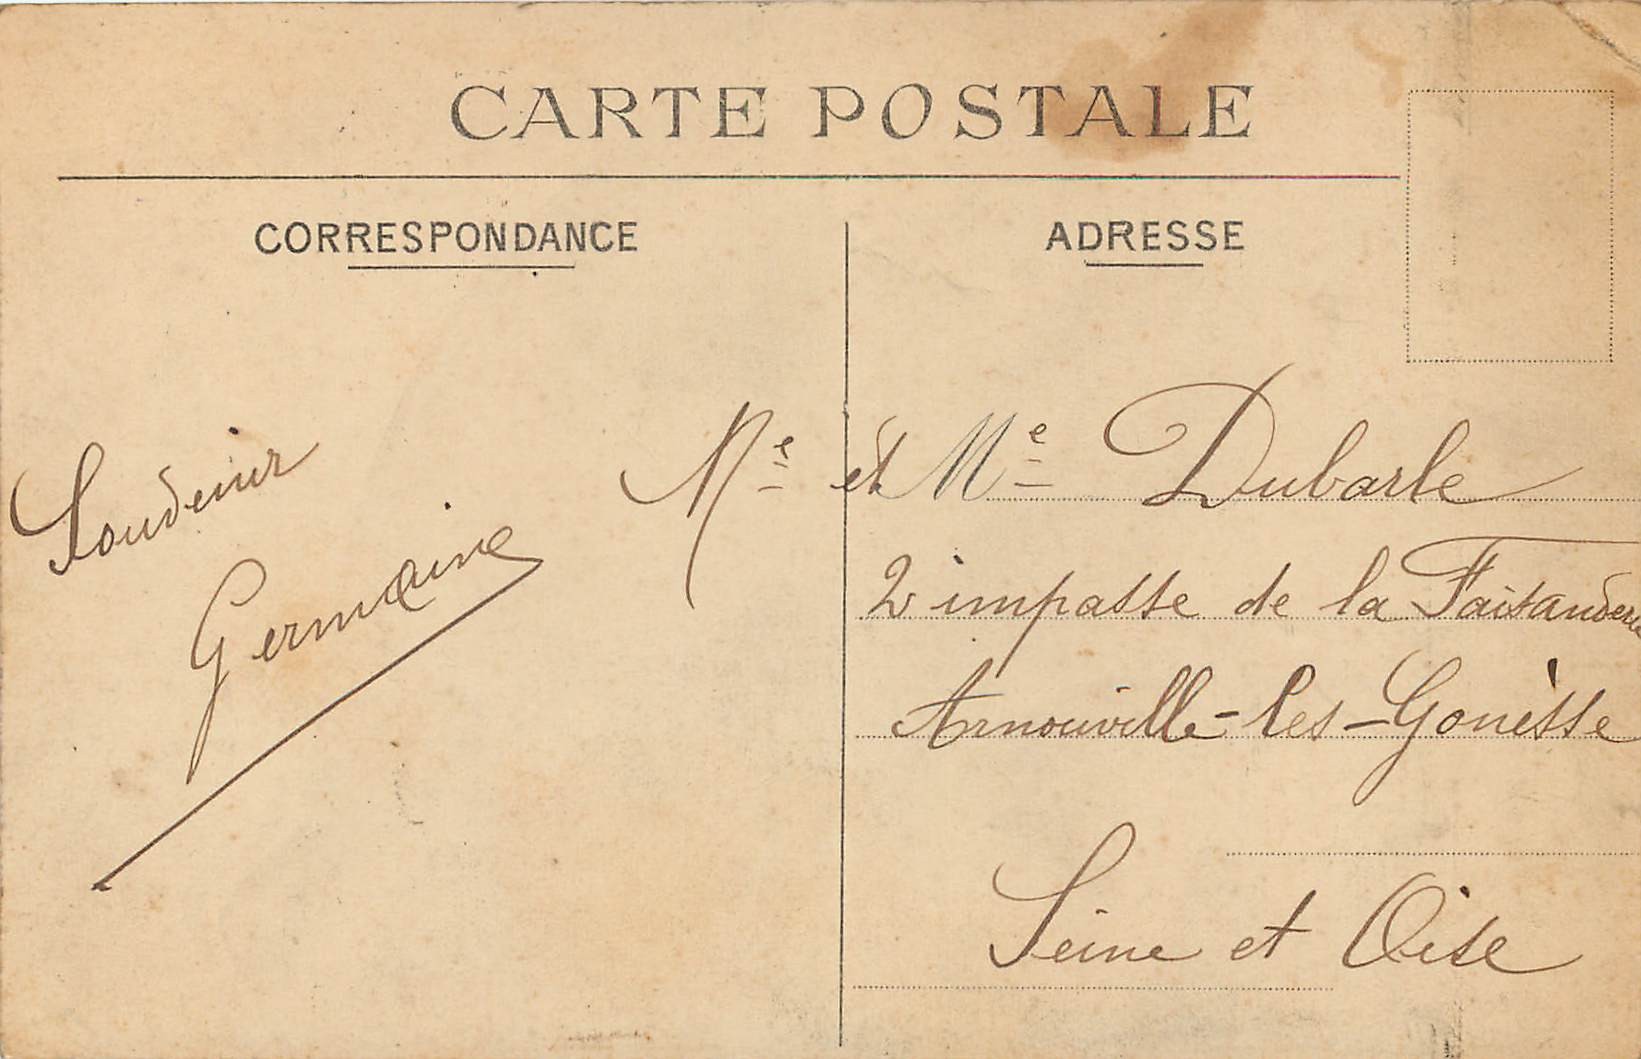 CARTE POSTALE
CORRESPONDANCE
ADRESSE
Souvenir
Germaine
Me et Me Dubarle
2 impasse de la Faisanderie
Arnouville-les-Gonèsse
Seine et Oise